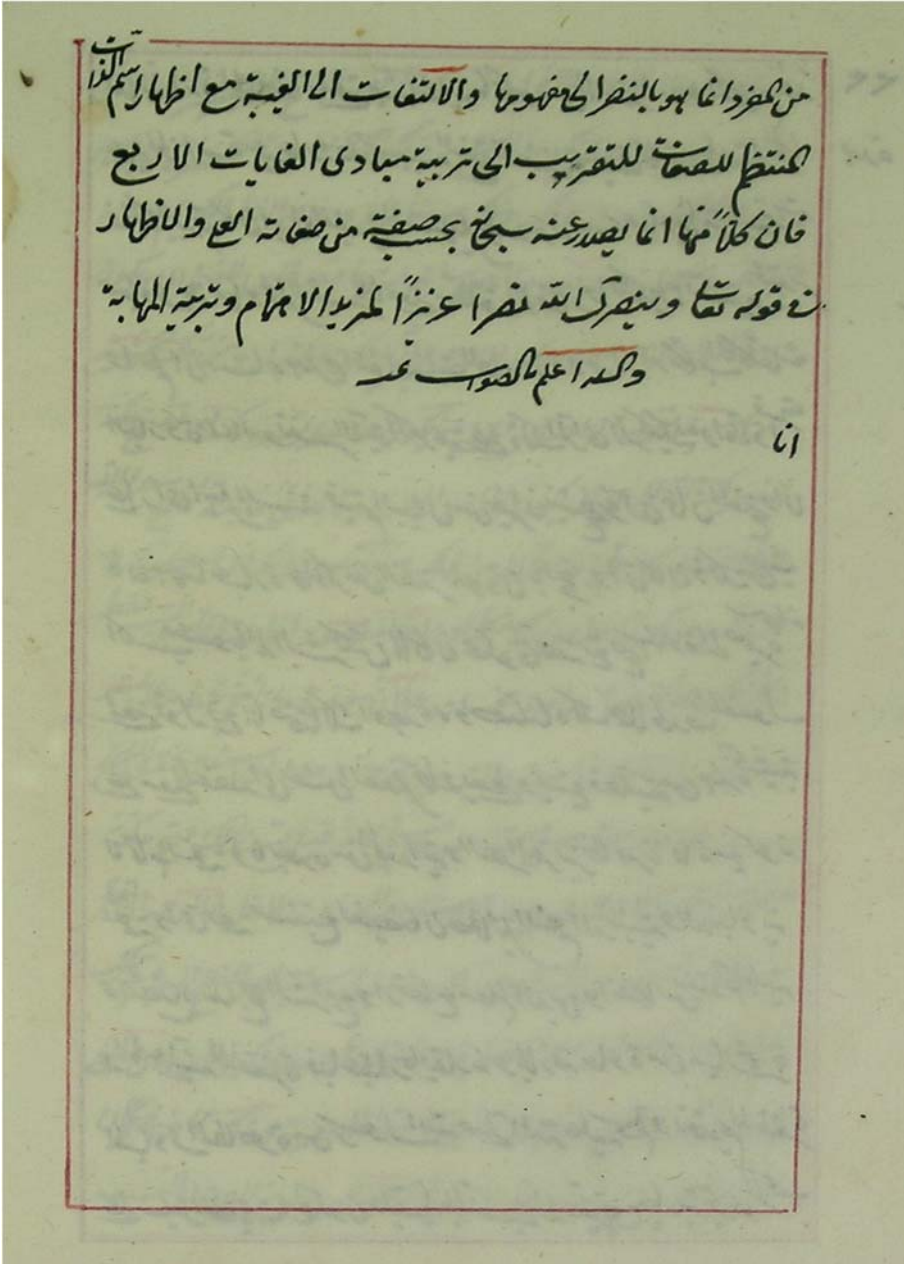 من المفرد انما هو بالنضر الى مفهومها والالتفات الى الغيبة مع اظهار اسم الذات
المنتظم للصفات للتقريب الى تربية مبادى الغايات الاربع
فان كلاً منها انما يصدر عنه سبحانه بحسب صفة من صفاته والاظهار
فى قوله تعا وينصرك الله نصرا عزيزاً لمزيد الاهتمام وتربية المهابة
والله اعلم بالصواب تمد
انا